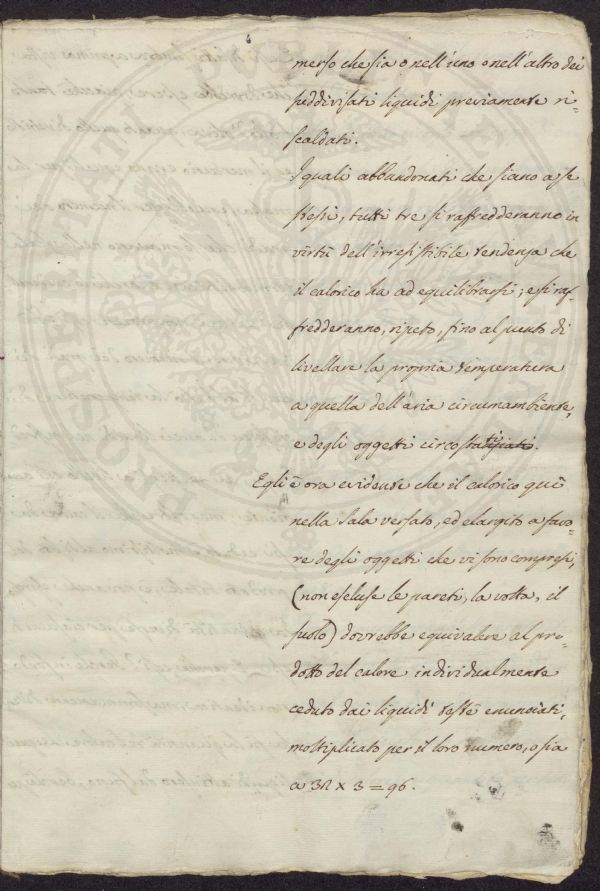 merso che sia o nell'uno o nell'altro dei
suddivisati liquidi previamente ri=
scaldati.
I quali abbandonati che siano a se
stessi, tutti tre si raffredderanno in
virtù dell'irresistibile tendenza che
il calorico ha ad equilibrarsi; e si raf=
fredderanno, ripeto, fino al punto di
livellare la propria temperatura
a quella dell'aria circumambiente,
e degli oggetti
Egli è ora evidente che il calorico quì
nella Sala versato, ed elargito a favo=
re degli oggetti che vi sono compresi,
(non escluse le pareti, la volta, il
suolo) dovrebbe equivalere al pro=
dotto del calore individualmente
ceduto dai liquidi testè enunciati,
moltiplicato per il loro numero, o sia
a 32 x 3 = 96.